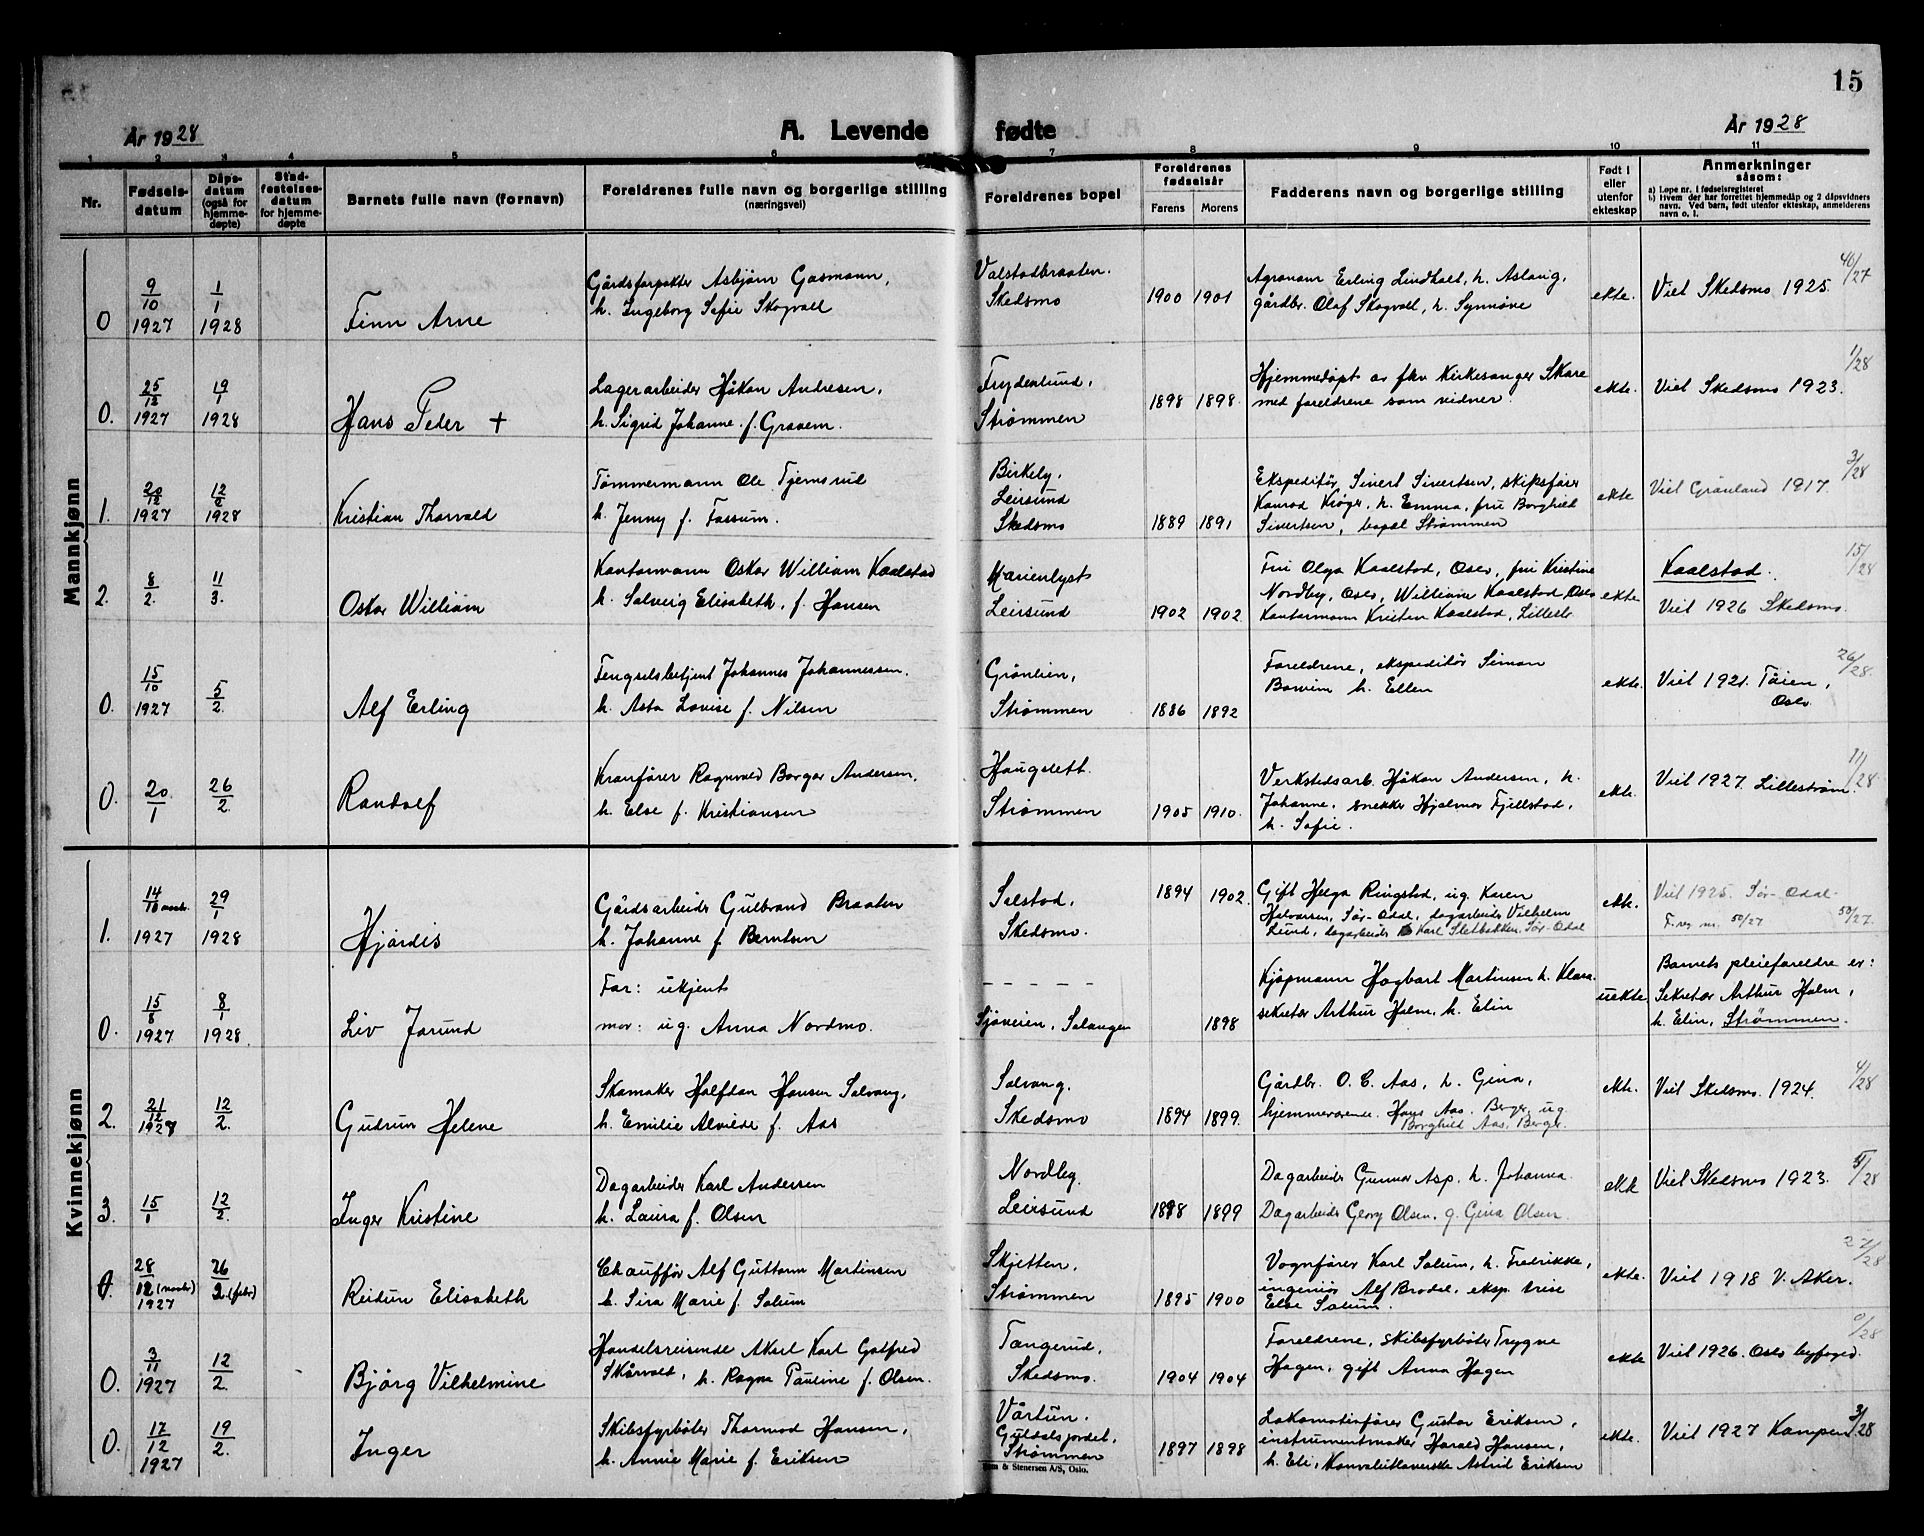 15
År 1928
A. Levende fødte
År 1928
1 2 3 4 5 6 7 8 9 10 11
Nr.
Fødsels-
datum
Dåps-
datum
(også for
hjemme-
døpte)
Stad-
festelses-
datum
for hjemme-
døpte
Barnets fulle navn (fornavn)
Foreldrenes fulle navn og borgerlige stilling
(næringsvei)
Foreldrenes bopel
Foreldrenes
fødselsår
Farens Morens
Fadderens navn og borgerlige stilling
Født i
eller
utenfor
ekteskap
Anmerkninger
såsom:
a) Løpe nr. i fødselsregisteret
b) Hvem der har forrettet hjemmedåp og 2 dåpsvidners
navn. Ved barn, født utenfor ekteskap, anmelderens
navn o. l.
Mannkjønn
0 9/10 1927 1/1 1928 Finn Arne
Gårdsforpakter Asbjørn Gasmann,
h. Ingeborg Sofie Skogvoll
Valstadbraaten.
Skedsmo
1900 1901
Agronom Erling Lindhael, h. Aslaug,
gårdbr. Olaf Skogvoll, h. Synnøve
ekte. Viet Skedsmo 1925. 40/27
0. 25/12 1927 19/1 1928 Hans Peder +
Lagerarbeider Håkon Andresen,
h. Sigrid Johanne f. Gravem.
Frydenlund,
Strømmen
1898 1898.
Hjemmedøpt av fhv. kirkesanger Skare
med foreldrene som vidner.
ekte. Viet Skedsmo 1923. 1/28
1. 20/12 1927 12/2 1928 Kristian Thorvald
Tømmermann Ole Tjemsrud
h. Jenny f. Fossum.
Birkely,
Leirsund
Skedsmo
1889 1891
Ekspeditør Sivert Sivertsen, skipsfører
Konrad Krøger, h. Emma, fru Borghild
Sivertsen, bopæl Strømmen
ekte Viet Grønland 1917. 3/28
2. 8/2. 11/3. Oskar William
Kontormann Oskar William Kaalstad
h. Solveig Elisabeth, f. Hansen
Marienlyst
Leirsund
1902 1902
Fru Olga Kaalstad, Oslo, fru Kristine
Nordby, Oslo, William Kaalstad, Oslo
Kontormann Kristen Kaalstad, Lillestr.
ekte Kaalstad. 15/28
Viet 1926 Skedsmo.
0. 15/10 1927 5/2. Alf Erling
Fengselsbetjent Johannes Johannessen.
h. Asta Lovise f. Nilsen
Grønlien,
Strømmen
1886 1892
Foreldrene, ekspeditør Simon
Bowim h. Ellen
ekte. Viet 1921. Tøien,
Oslo. 26/28
0. 20/1 26/2. Randolf
Kranfører Ragnvald Borgar Andersen,
h. Else f. Kristiansen
Haugslett.
Strømmen
1905 1910.
Verkstedsarb. Håkon Andersen, h.
Johanne, snekker Hjalmar Fjellstad,
h. Sofie.
ekte. Viet 1927. Lillestrøm. 11/28
Kvinnekjønn
1. 14/10 1927 29/1 1928 Hjørdis
Gårdsarbeider Gulbrand Braaten
h. Johanne f. Berntsen
Solstad,
Skedsmo.
1894 1902.
Gift Helga Ringstad, ug. Karen
Halvorsen, Sør-Odal, dagarbeider Vilhelm
Lund, dagarbeider Karl Sletbakken, Sør-Odal
ekte. Viet 1925. Sør-Odal.
F. reg. nr. 50/27 50/27.
0. 15/8 1927 8/1 1928. Liv Jorund
Far: ukjent
mor: ug. Anna Nordmo.
- - - - -
Sjøveien, Salangen
1898
Kjøpmann Hagbart Martinsen h. Klara.
sekretær Arthur Holm, h. Elin
uekte Barnets pleieforeldre er:
Sekretær Arthur Holm,
h. Elin, Strømmen.
2. 21/12 1927 12/2. Gudrun Helene
Skomaker Halfdan Hansen Solvang,
h. Emilie Alvilde f. Aas
Solvang.
Skedsmo
1894 1899.
Gårdbr. O. C. Aas, h. Gina,
hjemmeværende Hans Aas. Berger, ug.
Borghild Aas, Berger.
ekte. Viet Skedsmo. 1924. 4/28
3. 15/1 12/2. Inger Kristine
Dagarbeider Karl Andersen
h. Laura f. Olsen
Nordby.
Leirsund
1898 1899
Dagarbeider Gunnar Asp. h. Johanna.
Dagarbeider Georg Olsen. g. Gina Olsen.
ekte Viet Skedsmo 1923. 5/28
0. 28/12 1927 26/2 (febr) Reidun Elisabeth
Chauffør Alf Guttorm Martinsen
h. Sira Marie f. Solum
Skjetten,
Strømmen
1895 1900
Vognfører Karl Solum, h. Fredrikke,
ingeniør Alf Brodal, eksp. trise
Else Solum.
ekte. Viet 1918 V. Aker. 27/28
0. 3/11 1927 12/2. Bjørg Vilhelmine
Handelsreisende Aksel Karl Gotfred
Skårvold, h. Ragna Pauline f. Olsen.
Tangerud,
Skedsmo.
1904 1904
Foreldrene, skibsfyrbøter Trygve
Hagen, gift Anna Hagen
ekte Viet 1926. Oslo byfoged.
0. 17/12 1927 19/2. Inger
Skibsfyrbøter Thormod Hansen,
h. Annie Marie f. Eriksen
Vårtun.
Strømmen
1897 1898
Lokomotivfører Gustav Eriksen,
instrumentmaker Harald Hansen,
h. Eli, Astrid Eriksen
ekte. Viet 1927 Kampen 3/28
& Stenersen A/S, Oslo.